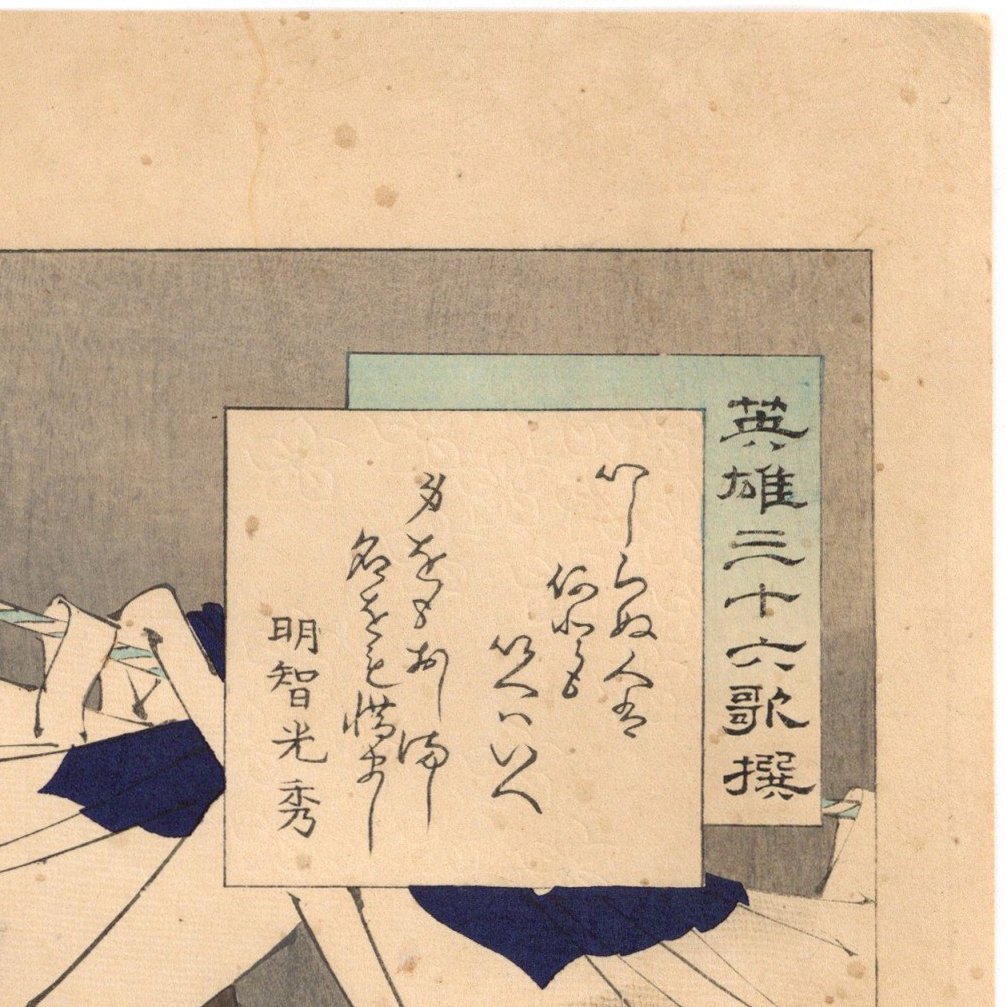 英雄三十六歌撰
心しらぬ人は
何とも
いへハいへ
身をもおしまし
名をも惜まし
明智光秀